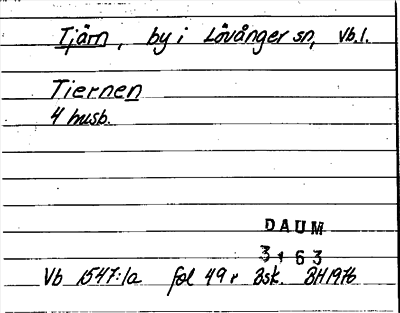 Tjärn, by i Lövånger sn, Vb.l.
Tiernen
4 husb.
DAUM
3163
Vb 1547:1a fol 49 r Bsk. BH1976